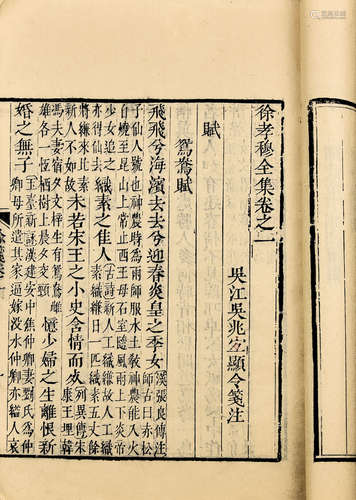 徐孝穆全集卷之一
吳江吳兆宜顯令箋注
賦
鴛鴦賦
飛飛兮海濱去去兮迎春炎皇之季女 漢張良傳注師古曰赤松
子仙人號也神農時為雨師服水玉教神農能入火
自燒至昆山上常止西王母石室隨風雨上下炎帝
少女追之亦得仙去 織素之佳人 古詩新人工織縑故人工織
素織縑日一匹織素五丈餘
將縑來比素新人不如故 未若宋王之小史含情而死 列異傳宋
康王埋韓
馮夫妻宿夕文梓生有鴛鴦雌
雄各一恆棲樹上晨夕交頸 憶少婦之生離恨新
婚之無子 玉臺新詠漢建安中焦仲卿妻劉氏為仲
卿母所遣其家逼嫁沒水仲卿亦縊人哀